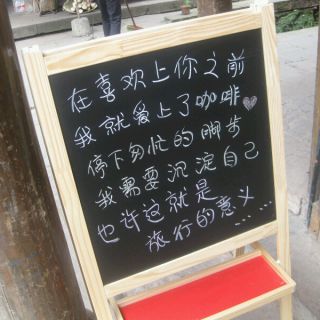 在喜欢上你之前
我就爱上了咖啡
停下匆忙的脚步
我需要沉淀自己
也许这就是
旅行的意义……